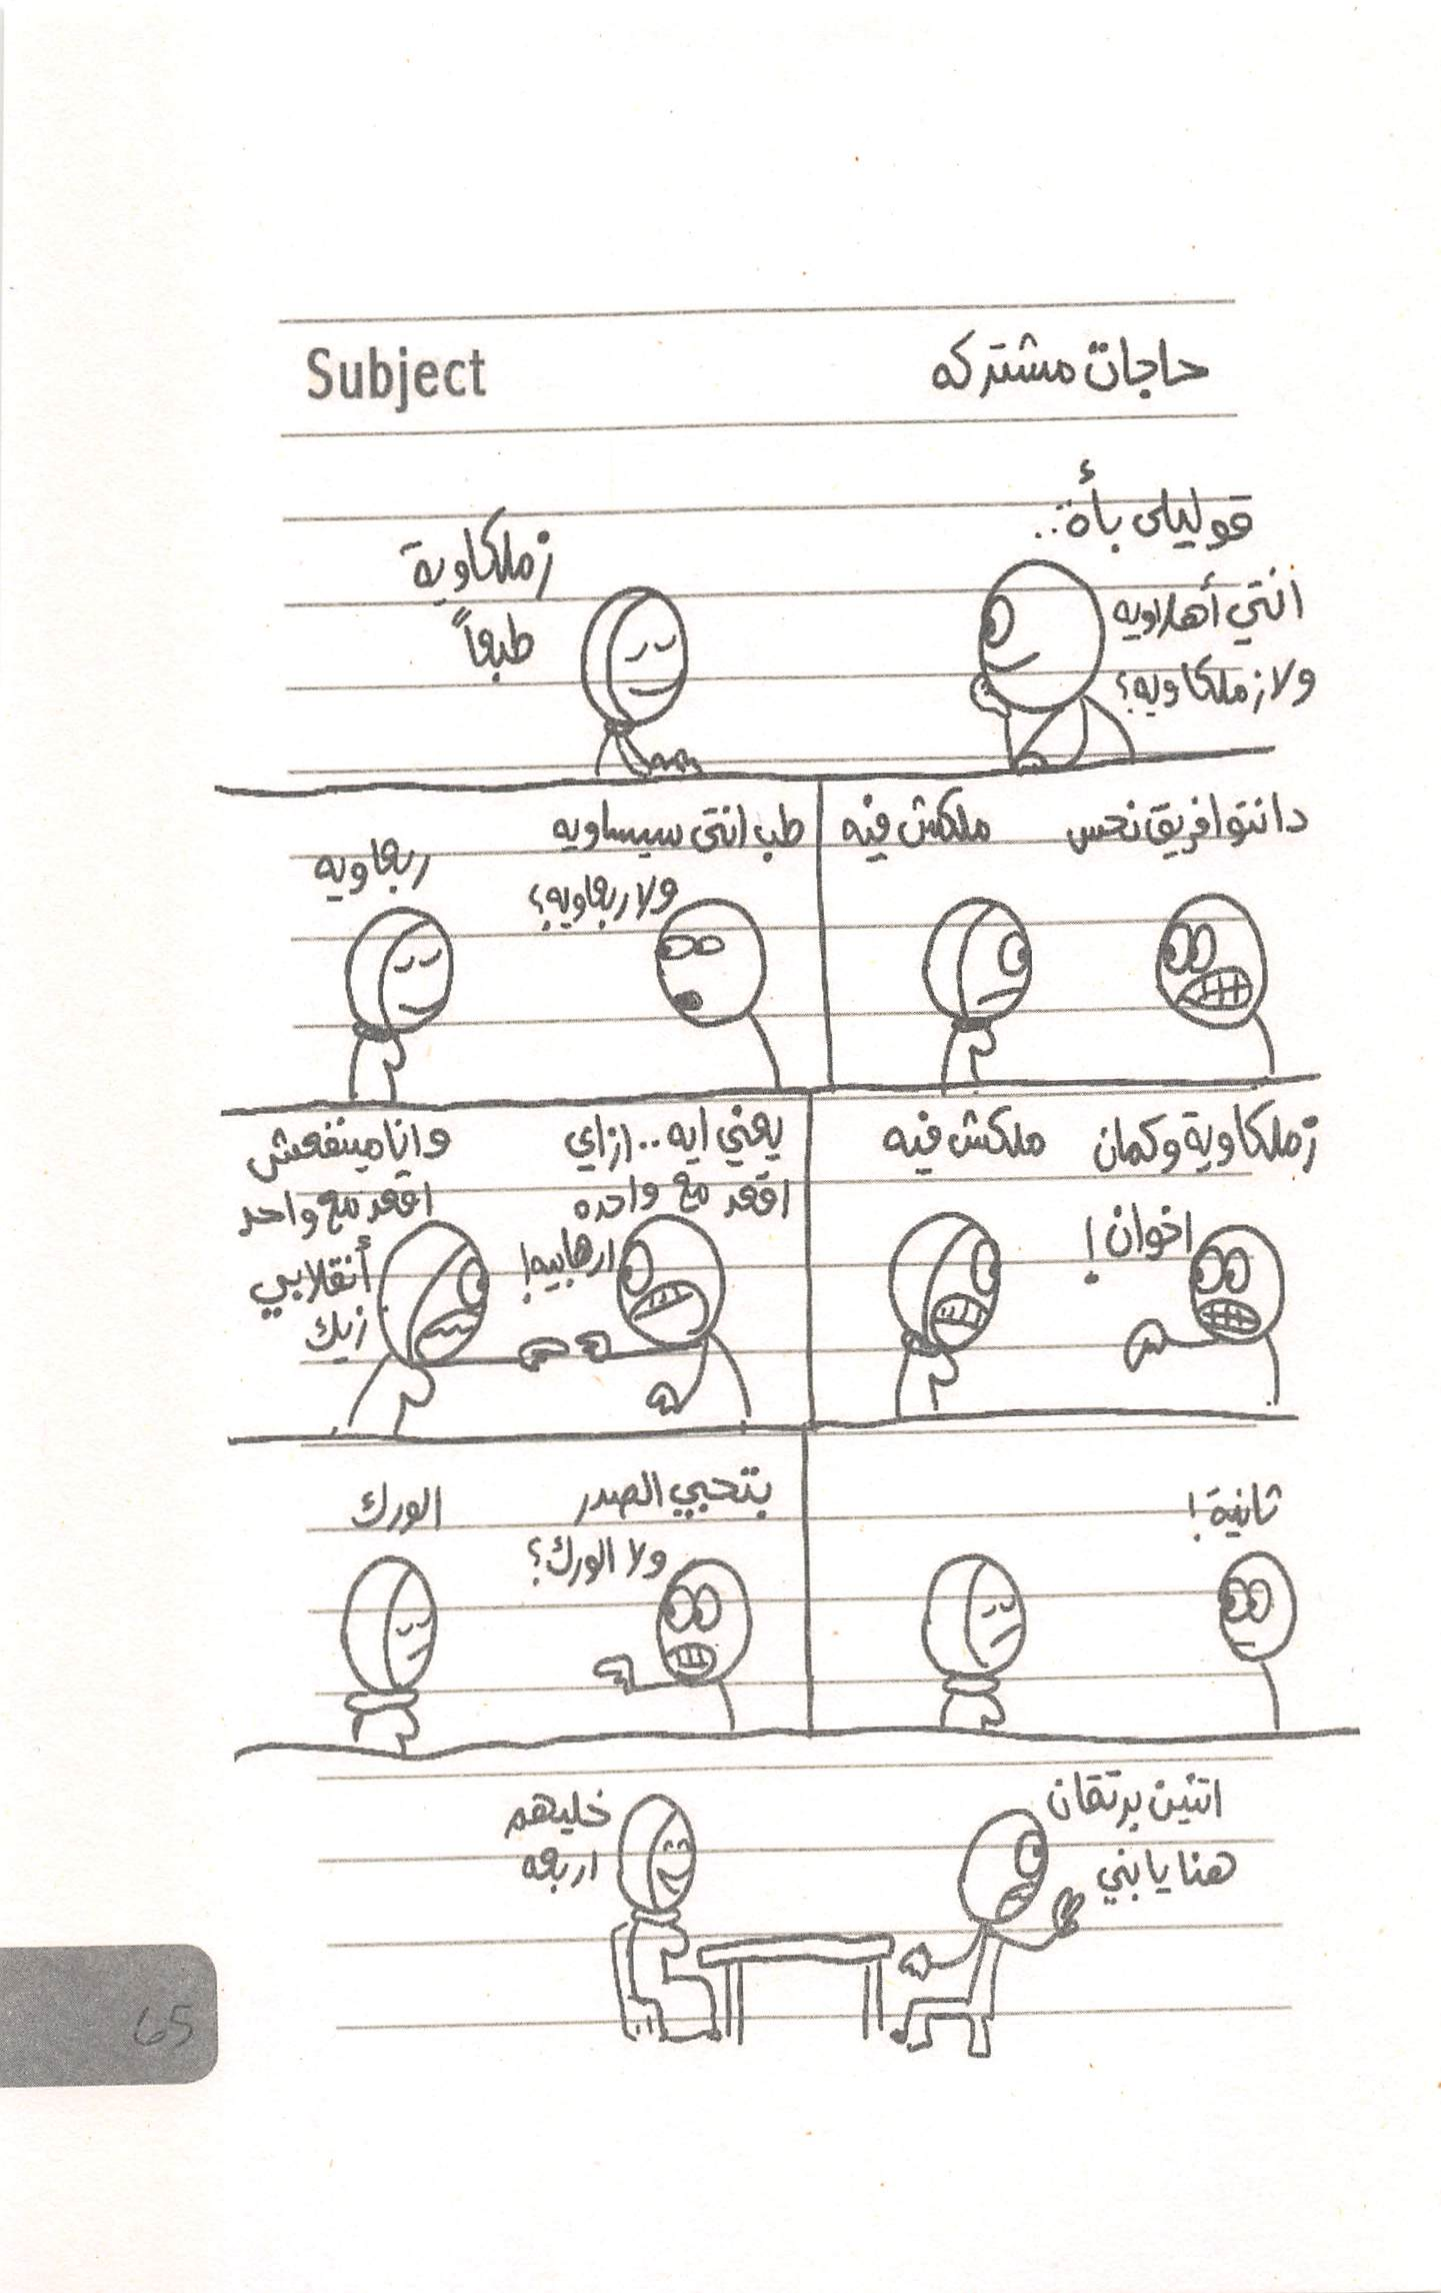 Subject
حاجات مشتركه
قوليلى بأة..
انتي أهلاويه
ولا زملكاويه؟
زملكاوية
طبعاً
دا انتوا فريق نحس
ملكش فيه
طب انتى سيساويه
ولا ربعاويه؟
ربعاويه
زملكاوية وكمان
اخوان!
ملكش فيه
يعني ايه.. ازاي
اقعد مع واحده
ارهابيه!
وانا مينفعش
اقعد مع واحد
أنقلابي
زيك
ثانية!
بتحبي الصدر
ولا الورك؟
الورك
اتنين برتقان
هنا يا بني
خليهم
اربعه
65